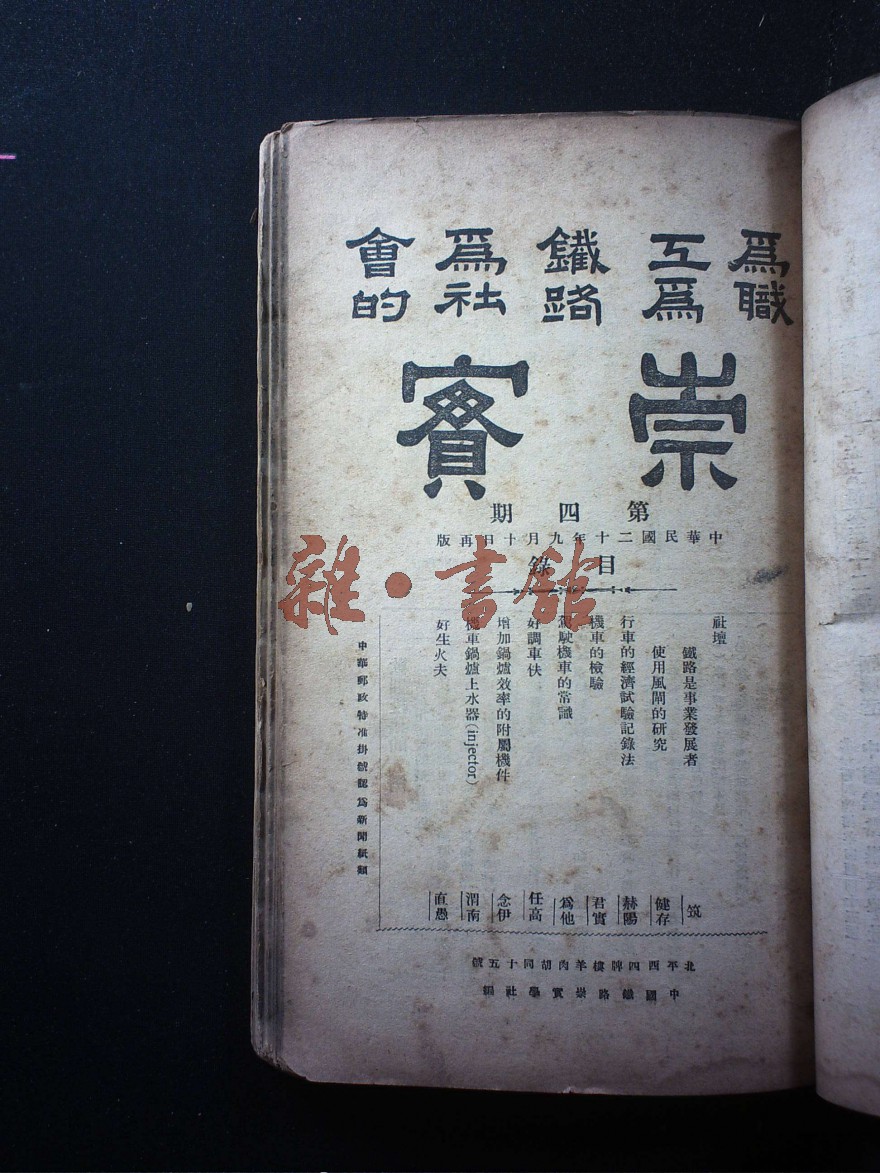 爲職工爲鐵路爲社會的
崇實
第四期
中華民國二十年九月十日再版
目錄
社壇
鐵路是事業發展者 筑
使用風閘的研究 健存
行車的經濟試驗記錄法 赫陽
機車的檢驗 君實
駕駛機車的常識 爲他
好調車伕 任高
增加鍋爐效率的附屬機件 念伊
機車鍋爐上水器(injector) 渭南
好生火夫 直愚
中華郵政特准掛號認爲新聞紙類
北平西四牌樓羊肉胡同十五號
中國鐵路崇實學社編
雜·書館